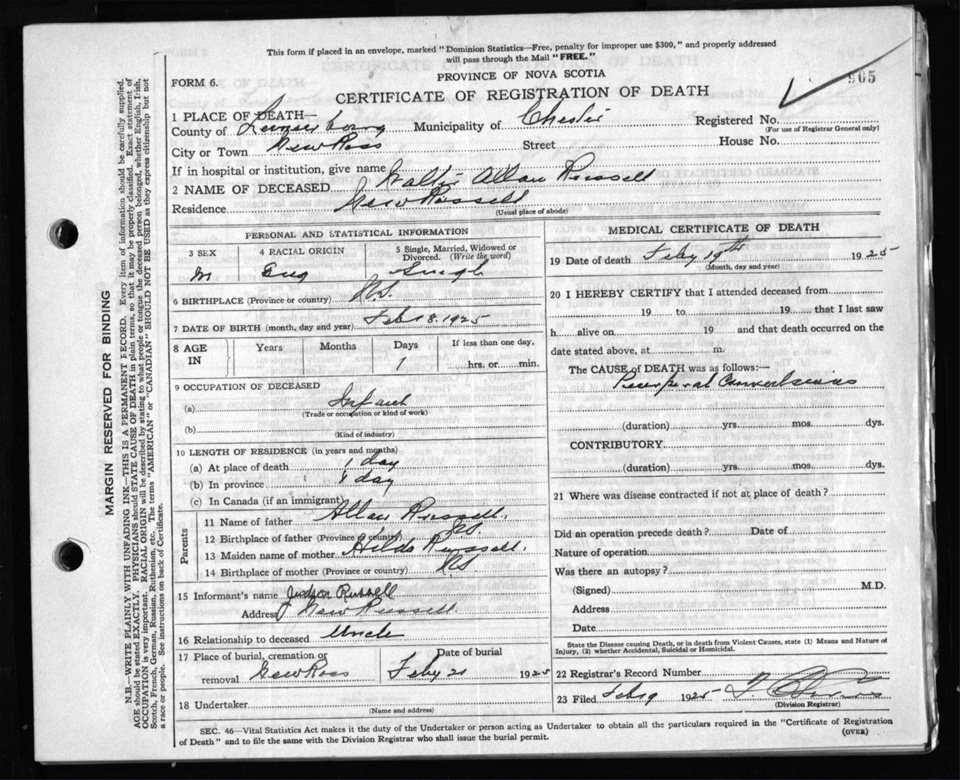 This form if placed in an envelope, marked "Dominion Statistics—Free, penalty for improper use $300," and properly addressed
will pass through the Mail "FREE."
PROVINCE OF NOVA SCOTIA
FORM 6.
CERTIFICATE OF REGISTRATION OF DEATH
905
1 PLACE OF DEATH—
County of Lunenburg Municipality of Chester Registered No.
(For use of Registrar General only)
City or Town New Ross Street House No.
If in hospital or institution, give name
2 NAME OF DECEASED Walter Allan Russell
Residence New Russell
(Usual place of abode)
PERSONAL AND STATISTICAL INFORMATION
3 SEX 4 RACIAL ORIGIN 5 Single, Married, Widowed or Divorced. (Write the word)
M Eng Single
6 BIRTHPLACE (Province or country) N.S.
7 DATE OF BIRTH (month, day and year) Feb 18. 1925
8 AGE IN Years Months Days If less than one day,
1 hrs. or min.
9 OCCUPATION OF DECEASED
(a) Infant
(Trade or occupation or kind of work)
(b)
(Kind of industry)
10 LENGTH OF RESIDENCE (in years and months)
(a) At place of death 1 day
(b) In province 1 day
(c) In Canada (if an immigrant)
Parents
11 Name of father Allan Russell.
12 Birthplace of father (Province or country) N.S.
13 Maiden name of mother Hilda Russell.
14 Birthplace of mother (Province or country) N.S
15 Informant's name Judson Russell
Address New Russell
16 Relationship to deceased Uncle
17 Place of burial, cremation or removal New Ross Date of burial Feby 21 1925
18 Undertaker
(Name and address)
MEDICAL CERTIFICATE OF DEATH
19 Date of death Feby 19th 1925
(Month, day and year)
20 I HEREBY CERTIFY that I attended deceased from
19 to 19 that I last saw
h alive on 19 and that death occurred on the
date stated above, at m.
The CAUSE of DEATH was as follows:—
Puerperal Convulsions
(duration) yrs. mos. dys.
CONTRIBUTORY
(duration) yrs. mos. dys.
21 Where was disease contracted if not at place of death?
Did an operation precede death? Date of
Nature of operation
Was there an autopsy?
(Signed) M.D.
Address
Date
State the Disease causing Death, or in death from Violent Causes, state (1) Means and Nature of
Injury, (2) whether Accidental, Suicidal or Homicidal.
22 Registrar's Record Number
23 Filed Feb 19 1925
(Division Registrar)
SEC. 46—Vital Statistics Act makes it the duty of the Undertaker or person acting as Undertaker to obtain all the particulars required in the "Certificate of Registration
of Death" and to file the same with the Division Registrar who shall issue the burial permit.
(OVER)
MARGIN RESERVED FOR BINDING
N.B.—WRITE PLAINLY WITH UNFADING INK—THIS IS A PERMANENT RECORD. Every item of information should be carefully supplied.
AGE should be stated EXACTLY. PHYSICIANS should STATE CAUSE OF DEATH in plain terms, so that it may be properly classified. Exact statement of
OCCUPATION is very important. RACIAL ORIGIN will be described by stating to what people or tongue the deceased person belonged, whether English, Irish,
Scotch, French, German, Russian, Ruthenian, etc. The terms "AMERICAN" or "CANADIAN" SHOULD NOT BE USED as they express citizenship but not
a race or people. See instructions on back of Certificate.